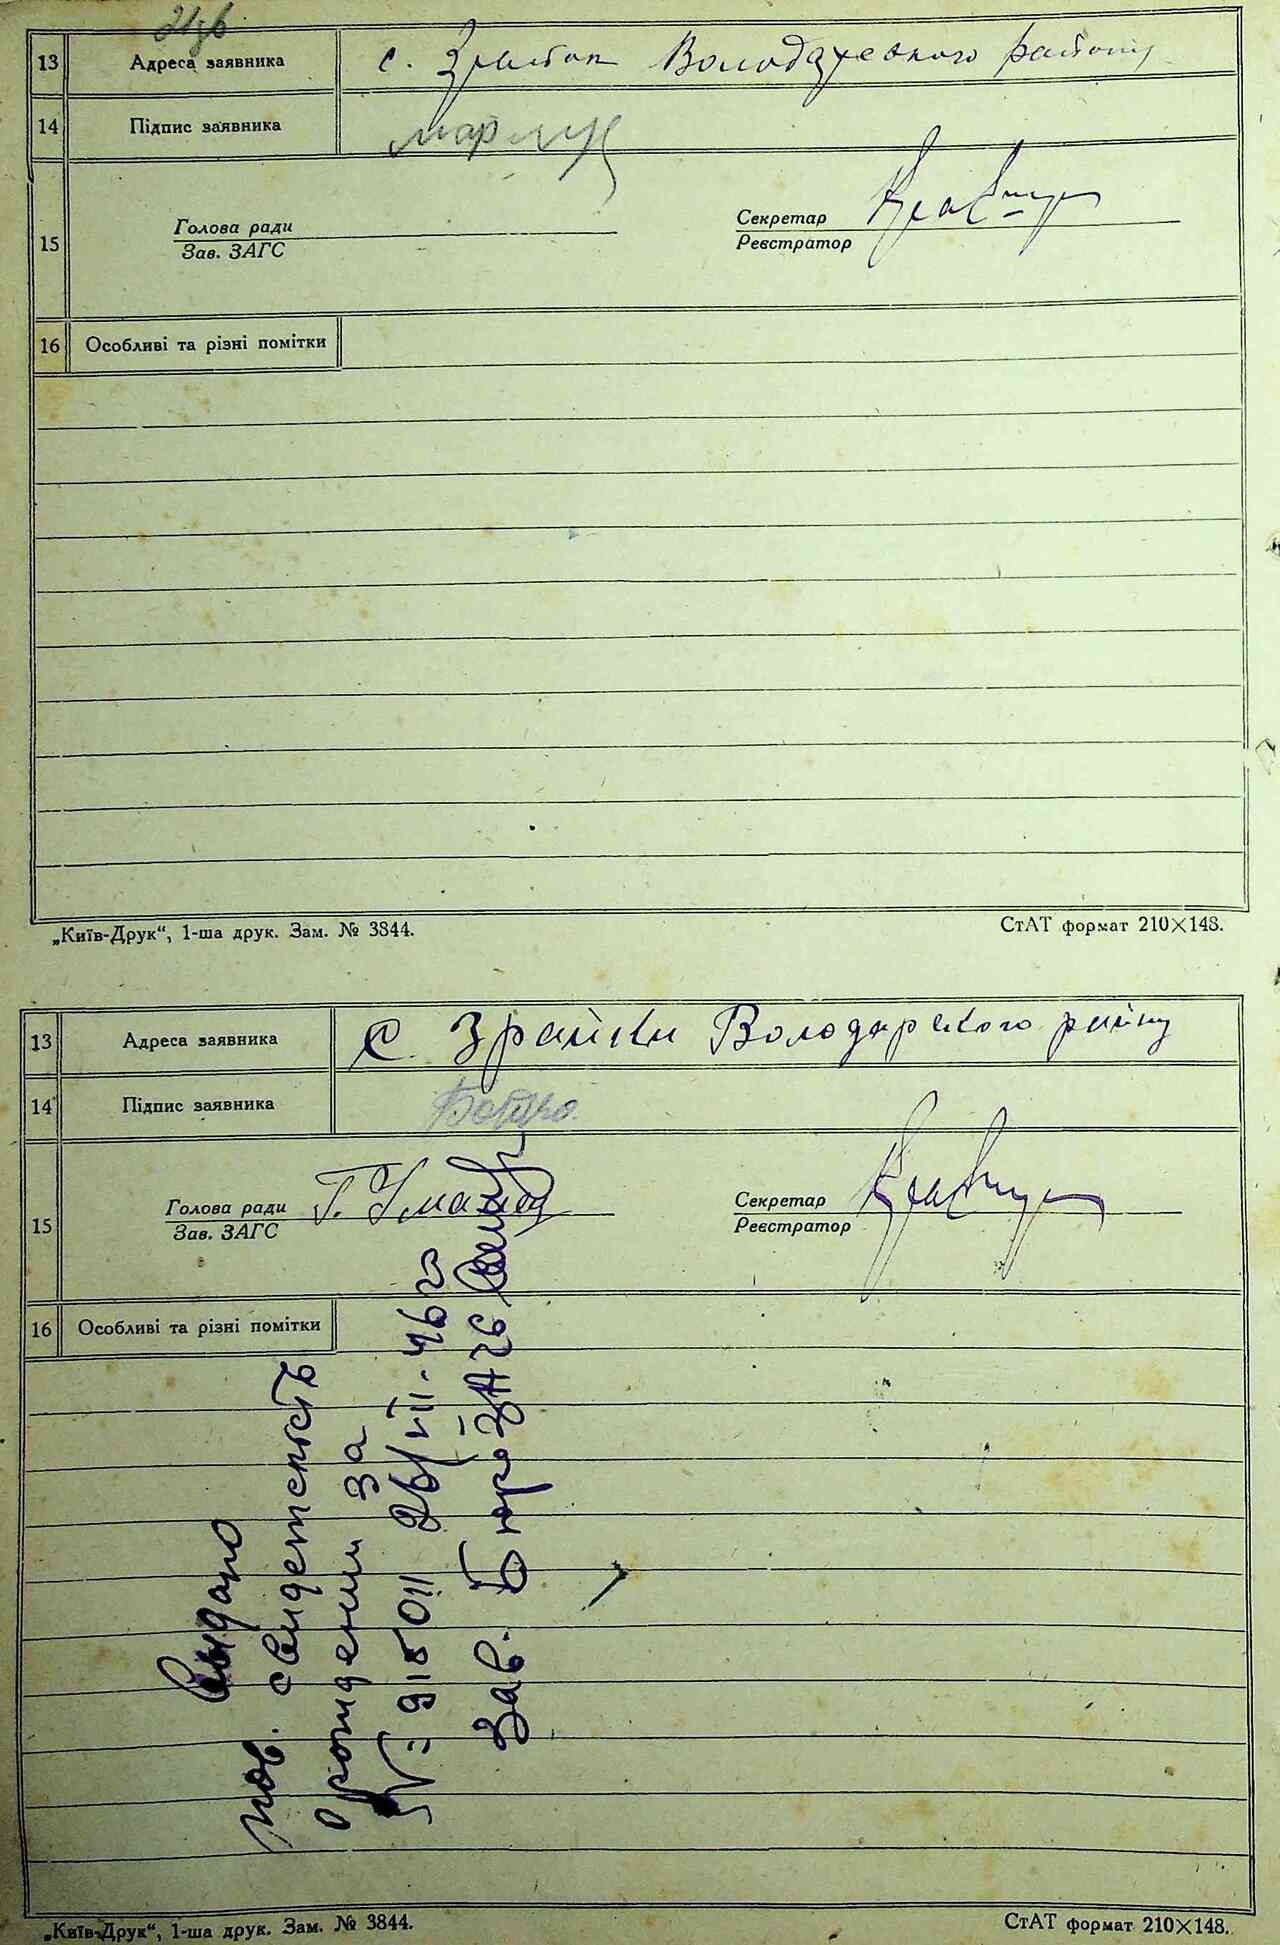 21зв
13 Адреса заявника с. Зрайки Володарского району
14 Підпис заявника
15 Голова ради Секретар Кравчук
Зав. ЗАГС Реєстратор
16 Особливі та різні помітки
„Київ-Друк“, 1-ша друк. Зам. № 3844. СтАТ формат 210×148.
13 Адреса заявника с. Зрайки Володарского району
14 Підпис заявника
15 Голова ради Г. Секретар Кравчук
Зав. ЗАГС Реєстратор
16 Особливі та різні помітки
Выдано
пов. свидетельсть
о рождении за
№ 915011 26/VII-46 г
Зав. Бюро ЗАГС
„Київ-Друк“, 1-ша друк. Зам. № 3844. СтАТ формат 210×148.